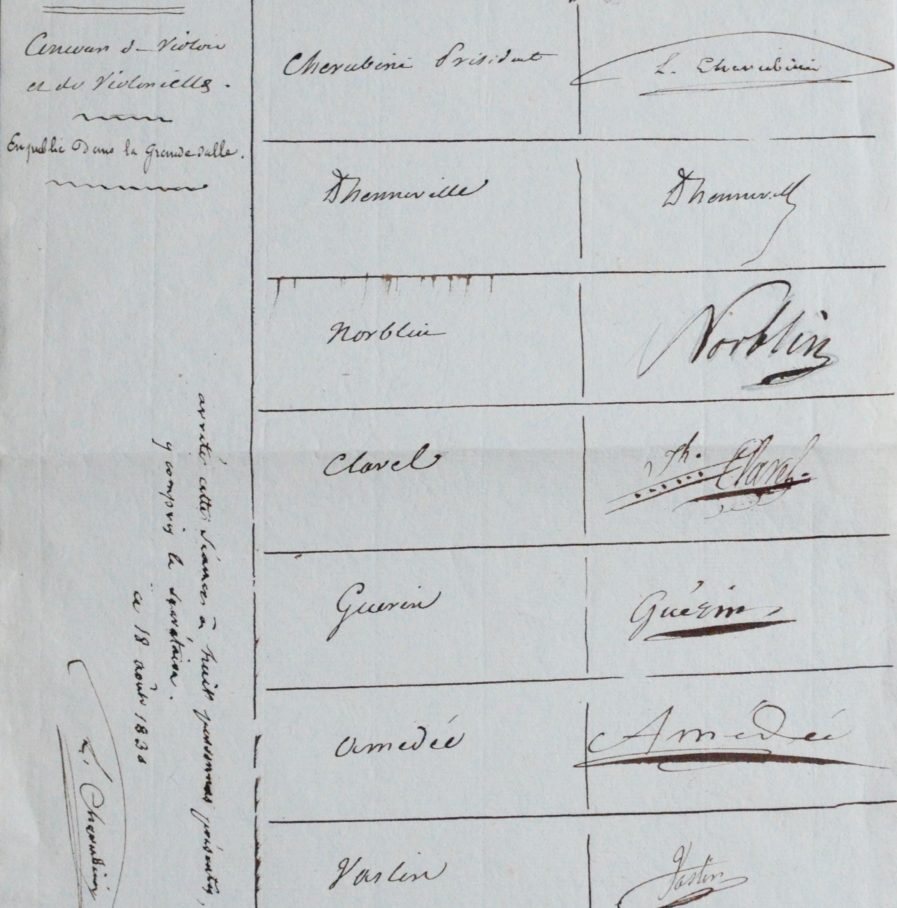 Concours de Violon
et de Violoncelle.
En public Dans la Grande salle.
Cherubini Président
L. Cherubini
Dhenneville
Dhennevill
Norblin
Norblin
Clavel
Jh. Clavel.
Guerin
Guérin
Amedée
Amédée
Vaslin
Vaslin
arrêté cette séance à huit personnes présentes,
y compris le secrétaire.
ce 18 août 1830
L. Cherubini